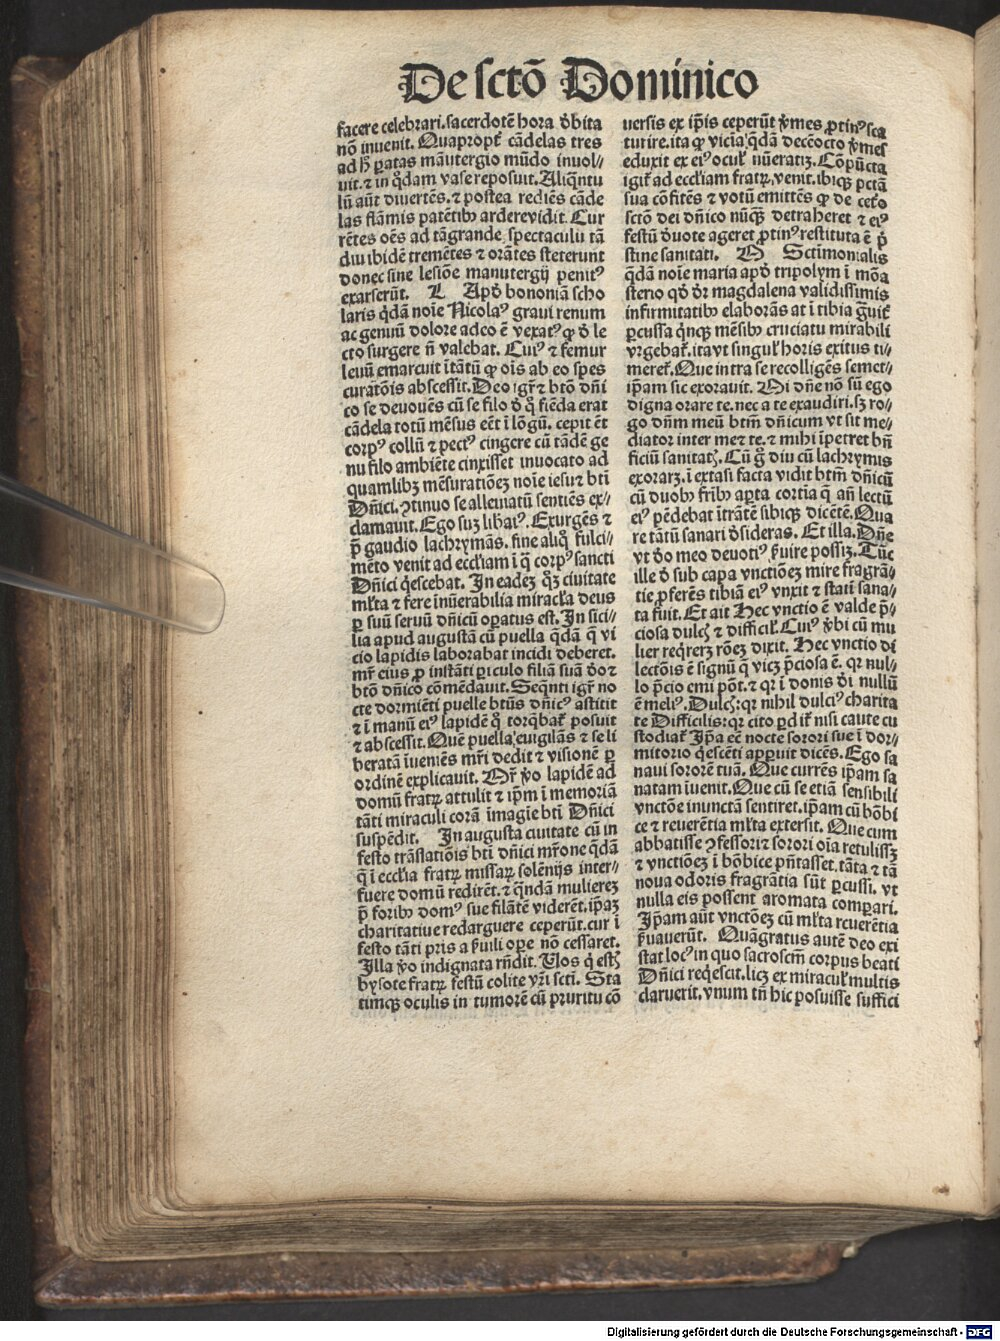 De sctō Dominico
facere celebrari. sacerdotē hora ꝺbita
nō inuenit. Quapropt̄ cādelas tres
ad ħ ꝑatas māutergio mūdo inuol⸗
uit. ⁊ in qͦdam vase reposuit. Aliqͣntu
lū aūt diuertēs. ⁊ postea rediēs cāde
las flāmis patētibꝰ ardere vidit. Cur
rētes oēs ad tā grande spectaculū tā
diu ibidē tremētes ⁊ orātes steterunt
donec sine lesiōe manutergij penitꝰ
exarserūt. L Apꝺ bononiā scho
laris qͥdā noīe Nicolaꝰ graui renum
ac genuū dolore adeo ē vexatꝰ ꝙ ꝺ le
cto surgere n̄ valebat. Cuiꝰ ⁊ femur
leuū emarcuit ītātū ꝙ oīs ab eo spes
curatōis abscessit. Deo igr̄ ⁊ btō dn̄i
co se deuouēs cū se filo ꝺ qͦ fiēda erat
cādela totū mēsus eēt ī lōgū. cepit ēt
corpꝰ collū ⁊ pectꝰ cingere cū tādē ge
nu filo ambiēte cinxisset inuocato ad
quamlibꝫ mēsuratiōeꝫ noīe iesu ⁊ bti
Dn̄ici. ꝯtinuo se alleuiatū sentiēs ex⸗
clamauit. Ego suꝫ libaꝰ. Exurgēs ⁊
p̄ gaudio lachrymās. sine aliqͦ fulci⸗
mēto venit ad eccl̄iam ī q̄ corpꝰ sancti
Dn̄ici qͥescebat. In eadeꝫ qꝫ ciuitate
ml̄ta ⁊ fere īnūerabilia miracl̄a deus
ꝑ suū seruū dn̄icū oꝑatus est. In sici⸗
lia apud augustā cū puella qͣdā q̄ vi
cio lapidis laborabat incidi deberet.
mr̄ eius ꝓ instāti ꝑiculo filiā suā ꝺo ⁊
btō dn̄ico cōmēdauit. Seqn̄ti igr̄ no
cte dormiēti puelle btūs dn̄icꝰ astitit
⁊ ī manū eiꝰ lapidē qͦ torqͣbat̄ posuit
⁊ abscessit. Quē puella euigilās ⁊ se li
beratā īueniēs mr̄i dedit ⁊ visionē ꝑ
ordinē explicauit. Mr̄ v̄o lapidē ad
domū fratꝝ attulit ⁊ ip̄m ī memoriā
tāti miraculi corā imagīe bti Dn̄ici
suspēdit. In augusta ciuitate cū in
festo trāslatiōis bti dn̄ici mr̄one qͣdā
q̄ ī eccl̄ia fratꝝ missaꝝ solēnijs inter⸗
fuere domū redirēt. ⁊ qͣndā muliereꝫ
p̄ foribꝰ domꝰ sue filātē viderēt. ip̄aꝫ
charitatiue redarguere ceperūt. cur ī
festo tāti pris a ẜuili oꝑe nō cessaret.
Illa v̄o indignata rn̄dit. Vos q̄ esti
bysote fratꝝ festū colite vr̄i scti. Sta
timqꝫ oculis in tumorē cū pruritu cō
uersis ex ip̄is ceperūt v̄mes ꝓtinꝰ sca
turire. ita ꝙ vicia qͣdā decēocto v̄mes
eduxit ex eiꝰ ocul̄ nūeratiꝫ. Cōpūcta
igit̄ ad eccl̄iam fratꝝ venit. ibiqꝫ pctā
sua cōfitēs ⁊ votū emittēs ꝙ de cetͦo
sctō dei dn̄ico nūqꝫ detraheret ⁊ eiꝰ
festū ꝺuote ageret ꝓtinꝰ restituta ē p̄
stine sanitati. M Sctīmonialis
qͣdā noīe maria apꝺ tripolym ī mōa
sterio qꝺ ꝺr magdalena validissimis
infirmitatibꝰ elaborās at ī tibia gͣuit̄
ꝑcussa qͥnqꝫ mēsibꝰ cruciatu mirabili
vrgebat̄. ita vt singul̄ horis exitus ti⸗
meret̄. Que intra se recolligēs semet⸗
ip̄am sic exorauit. Mi dn̄e nō sū ego
digna orare te. nec a te exaudiri. sꝫ ro⸗
go dn̄m meū btm̄ dn̄icum vt sit me⸗
diator inter me ⁊ te. ⁊ mihi īpetret bn̄
ficiū sanitatꝭ. Cū gͦ diu cū lachrymis
exoraꝫ. ī extasi facta vidit btm̄ dn̄icū
cū duobꝰ frībꝰ aꝑta cortīa q̄ an̄ lectū
eiꝰ pēdebat ītrātē sibiqꝫ dicētē. Qua
re tātū sanari ꝺsideras. Et illa. Dn̄e
vt ꝺo meo deuotiꝰ ẜuire possiꝫ. Tūc
ille ꝺ sub capa vnctiōeꝫ mire fragrā⸗
tie ꝓferēs tibiā eiꝰ vnxit ⁊ statī sana⸗
ta fuit. Et ait Hec vnctio ē valde p̄⸗
ciosa dulcꝭ ⁊ difficil̄. Cuiꝰ v̄bi cū mu
lier reqͥrerꝫ rōeꝫ dixit. Hec vnctio di
lectōis ē signū q̄ vicꝫ p̄ciosa ē. qr nul⸗
lo p̄cio emi pōt. ⁊ qr ī donis ꝺi nullū
ē meliꝰ. Dulcꝭ: qr nihil dulciꝰ charita
te Difficilis: qr cito ꝑdit̄ nisi caute cu
stodiat̄ Ip̄a eē nocte sorori sue ī dor⸗
mitorio qͥescēti apꝑuit dicēs. Ego sa
naui sororē tuā. Que currēs ip̄am sa
natam īuenit. Que cū se etiā sensibili
vnctōe inunctā sentiret. ip̄am cū bōbi
ce ⁊ reuerētia ml̄ta extersit. Que cum
abbatisse ꝯfessori ⁊ sorori oīa retulisꝫ
⁊ vnctiōeꝫ ī bōbice pn̄tasset. tāta ⁊ tā
noua odoris fragrātia sūt ꝑcussi. vt
nulla eis possent aromata comꝑari.
Ip̄am aūt vnctōeꝫ cū ml̄ta reuerētia
ẜuauerūt. Quā gratus autē deo exi
stat locꝰ in quo sacroscm̄ corpus beati
Dn̄ici reqͥescit. licꝫ ex miracul̄ multis
claruerit. vnum tn̄ hic posuisse suffici
Digitalisierung gefördert durch die Deutsche Forschungsgemeinschaft - DFG